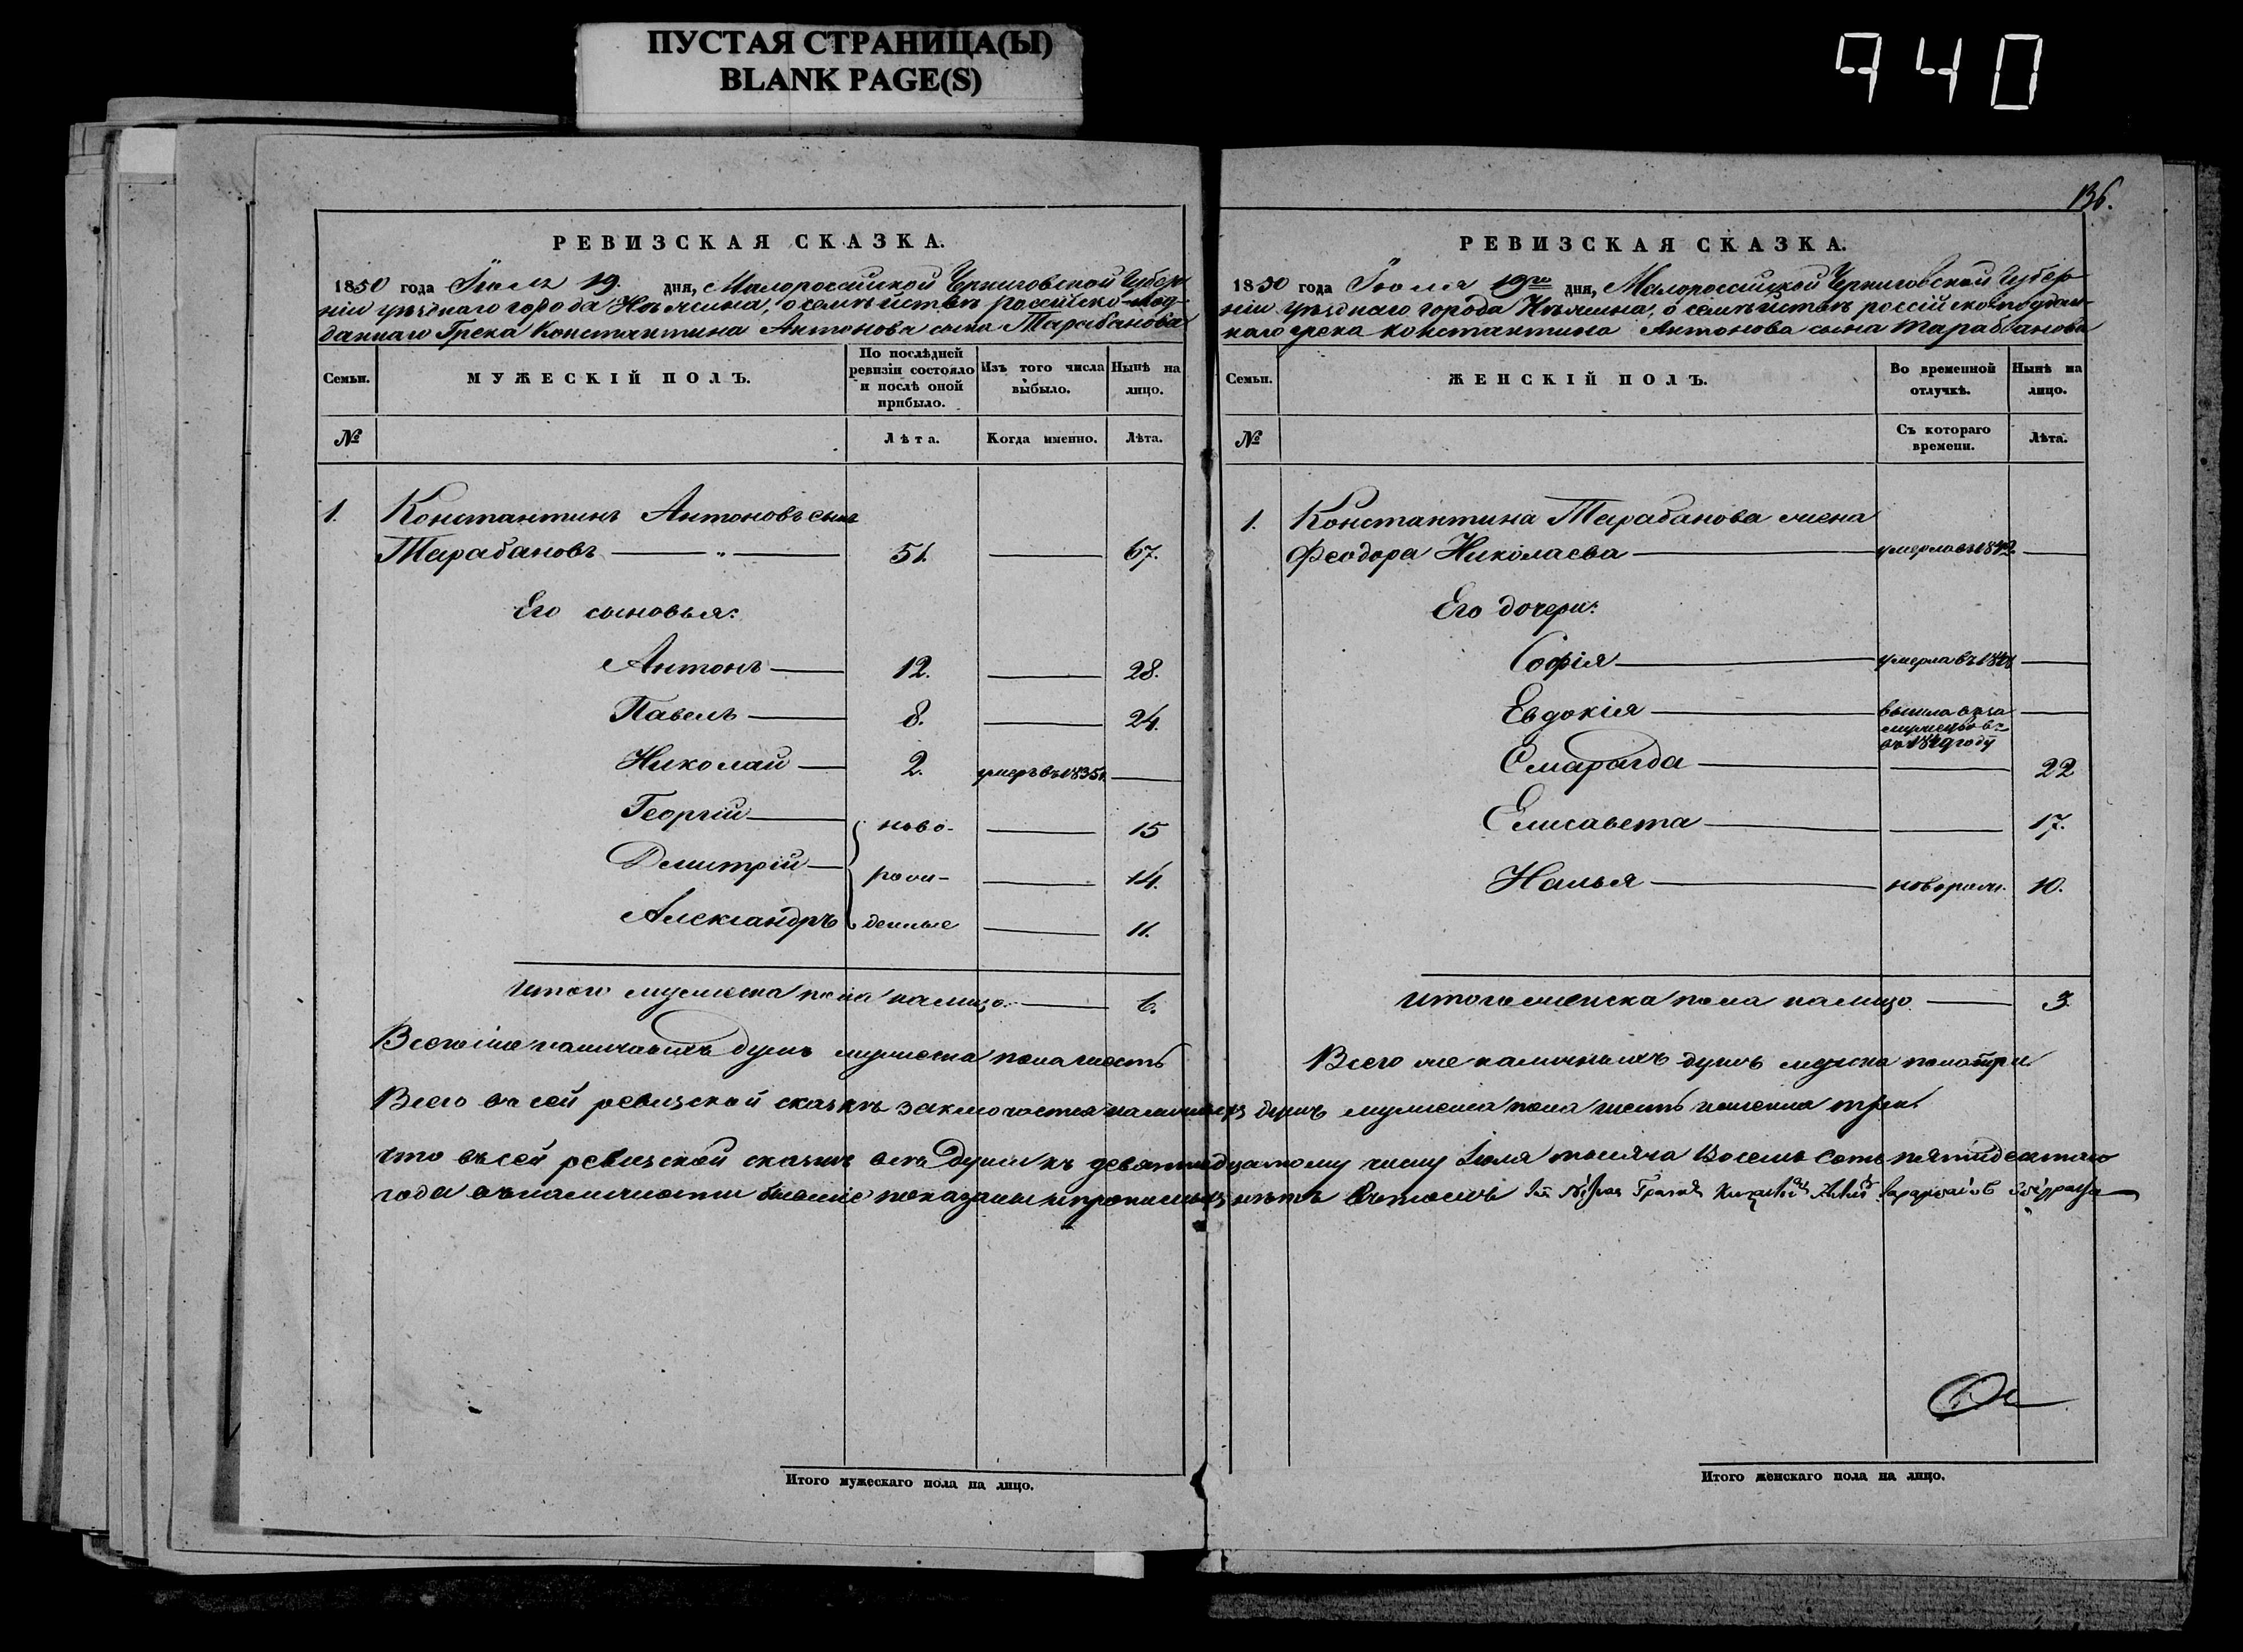 ПУСТАЯ СТРАНИЦА(Ы)
BLANK PAGE(S)
940
РЕВИЗСКАЯ СКАЗКА.
1850 года Іюля 19. дня, Малороссійской Черниговской Губер-
ніи уѣзднаго города Нѣжина, о семѣйствѣ россійско-под-
даннаго Грека Константина Антонова сына Тарабанова
Семьи.
МУЖЕСКІЙ ПОЛЪ.
По послѣдней ревизіи состояло и послѣ оной прибыло.
Изъ того числа выбыло.
Нынѣ на лицо.
№
Лѣта.
Когда именно.
Лѣта.
1. Константинъ Антоновъ сынъ
Тарабановъ — " — 51. — 67.
Его сыновья:
Антонъ — 12. — 28.
Павелъ — 8. — 24.
Николай — 2. умеръ въ 1835г. —
Георгій — ново- — 15
Дмитрій — рож- — 14.
Александръ денные — 11.
Итого мужеска пола налицо. — 6.
Всего же наличныхъ душъ мужеска пола шесть
136.
РЕВИЗСКАЯ СКАЗКА.
1850 года Іюля 19го дня, Малороссійской Черниговской Губер-
ніи уѣзднаго города Нѣжина, о семѣйствѣ россійскоподдан-
наго грека Константина Антонова сына Тарабанова
Семьи.
ЖЕНСКІЙ ПОЛЪ.
Во временной отлучкѣ.
Нынѣ на лицо.
№
Съ котораго времени.
Лѣта.
1. Константина Тарабанова жена
Феодора Николаева — умерла въ —
Его дочери:
Софія — умерла въ —
Евдокія — вышла въ за
мужество
въ 1849 году —
Смарагда — — 22
Елисавета — — 17.
Налья — новорож. 10.
Итого женска пола налицо — 3.
Всего же наличныхъ душъ пола три
Всего въ сей ревизской сказкѣ заключается наличныхъ душъ мужеска пола шесть и женска три.
Что въ сей ревизской сказкѣ всѣ души къ девятнадцатому числу Іюля тысяча Восемь Сотъ пятидесятаго
года въ наличности бывшіе показаны и прописныхъ нѣтъ въ томъ
Итого мужескаго пола на лицо.
Итого женскаго пола на лицо.